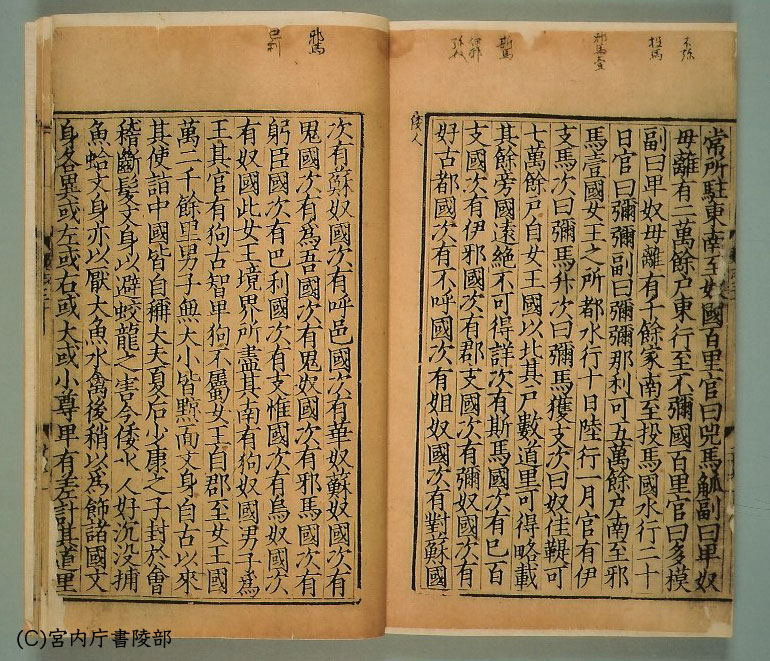 不弥
投馬
邪馬壹
斯馬
伊邪
弥奴
倭人
常所駐東南至奴國百里官曰兕馬觚副曰卑奴
毋離有二萬餘戶東行至不彌國百里官曰多模
副曰卑奴毋離有千餘家南至投馬國水行二十
日官曰彌彌副曰彌彌那利可五萬餘戶南至邪
馬壹國女王之所都水行十日陸行一月官有伊
支馬次曰彌馬升次曰彌馬獲支次曰奴佳鞮可
七萬餘戶自女王國以北其戶數道里可得略載
其餘旁國遠絶不可得詳次有斯馬國次有已百
支國次有伊邪國次有郡支國次有彌奴國次有
好古都國次有不呼國次有姐奴國次有對蘇國
邪馬
巴利
次有蘇奴國次有呼邑國次有華奴蘇奴國次有
鬼國次有爲吾國次有鬼奴國次有邪馬國次有
躬臣國次有巴利國次有支惟國次有烏奴國次
有奴國此女王境界所盡其南有狗奴國男子爲
王其官有狗古智卑狗不屬女王自郡至女王國
萬二千餘里男子無大小皆黥面文身自古以來
其使詣中國皆自稱大夫夏后少康之子封於會
稽斷髮文身以避蛟龍之害今倭水人好沉没捕
魚蛤文身亦以厭大魚水禽後稍以爲飾諸國文
身各異或左或右或大或小尊卑有差計其道里
(C)宮内庁書陵部